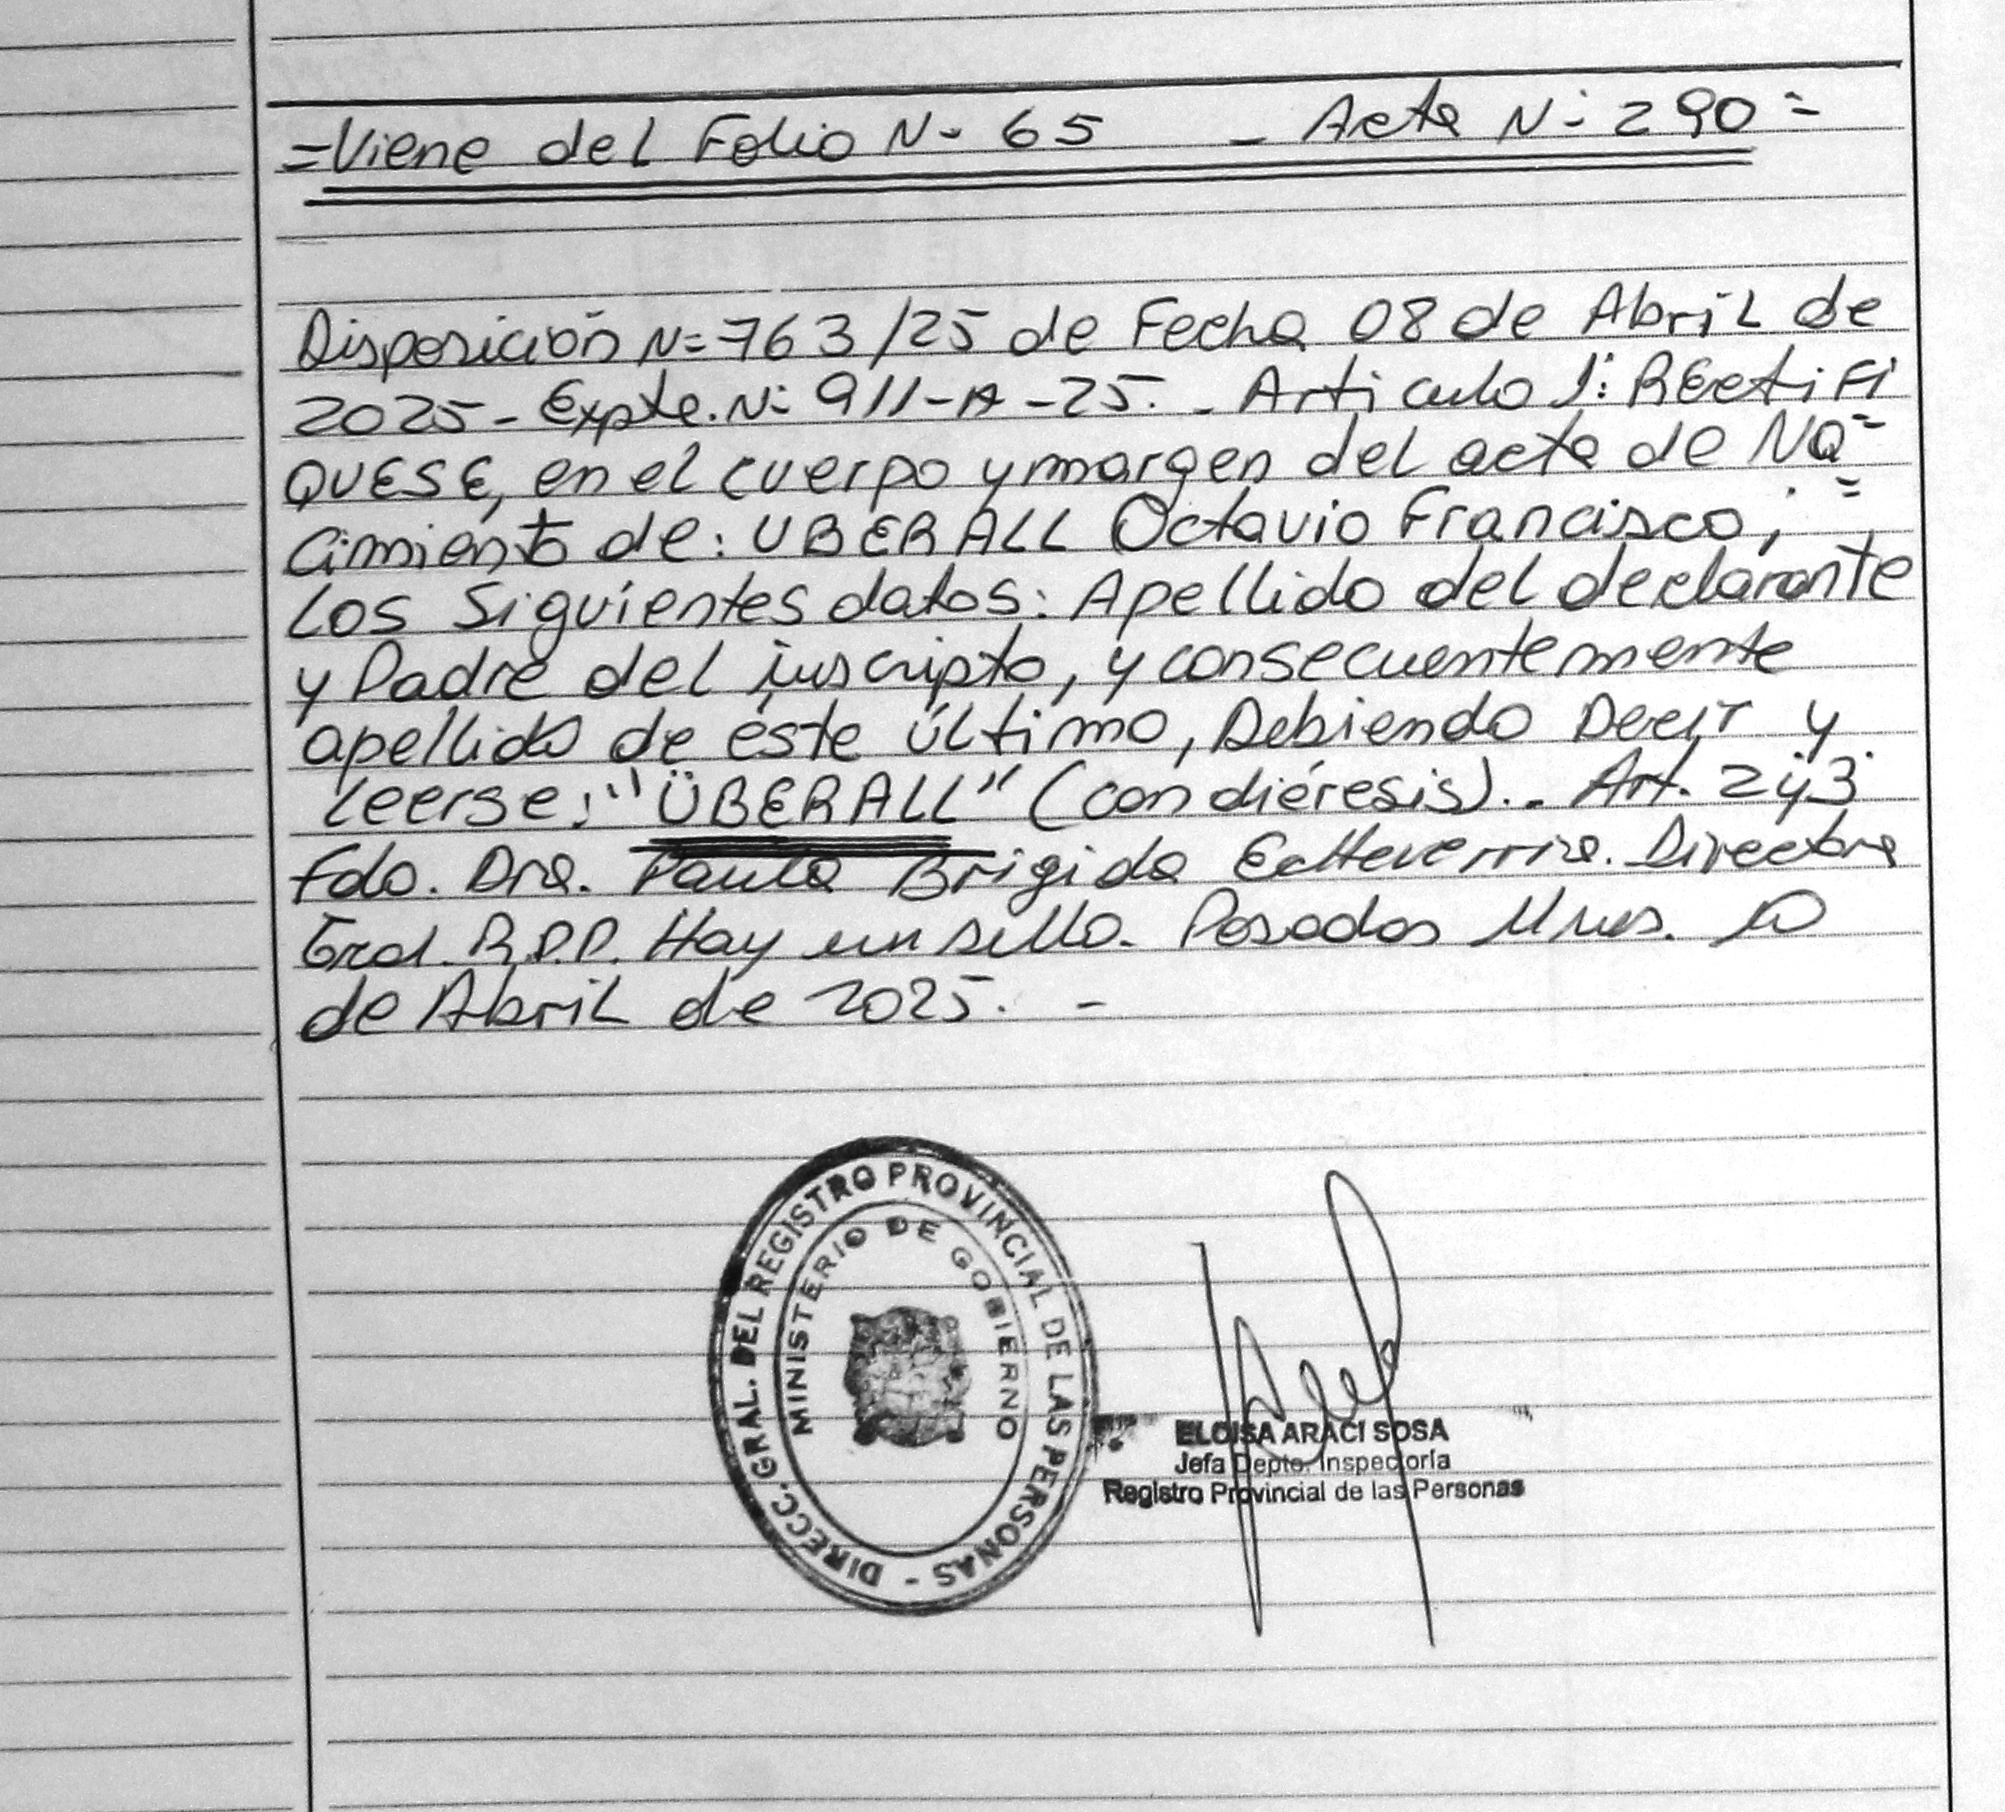 =Viene del Folio N- 65 - Acta N: 290=
Disposición N= 763/25 de Fecha 08 de Abril de
2025- Expte. N: 911-A-25. - Articulo 1: REctiFi
QUESE, en el cuerpo y margen del acta de Na=
cimiento de: UBERALL Octavio Francisco; =
Los Siguientes datos: Apellido del declarante
y Padre del inscripto, y consecuentemente
apellido de éste último, Debiendo Decir y
Leerse: "ÜBERALL" (con diéresis). - Art. 2 y 3
Fdo. Dra. Paula Brigida Echeverria. Directora
Gral. R.P.P. Hay un sello. Posadas Mnes. 10
de Abril de 2025. -
DIRECC. GRAL. DEL REGISTRO PROVINCIAL DE LAS PERSONAS -
MINISTERIO DE GOBIERNO
ELOISA ARACI SOSA
Jefa Depto. Inspectoría
Registro Provincial de las Personas